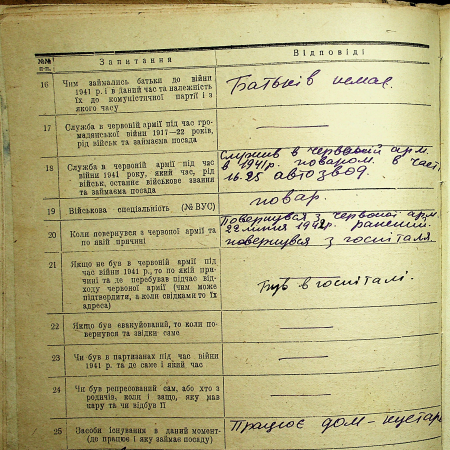 №№ п.п. Запитання Відповіді
16 Чим займались батьки до війни
1941 р. і в даний час та належність
їх до комуністичної партії і з
якого часу
Батьків немає.
17 Служба в червоній армії під час гро-
мадянської війни 1917—22 років,
рід військ та займаєма посада
18 Служба в червоній армії під час
війни 1941 року, який час, рід
військ, останнє військове звання
та займаєма посада
Служив в червоній арм.
в 1941р. поваром. в част.
16.25 автозвод.
19 Військова спеціальність (№ ВУС)
повар.
20 Коли повернувся з червоної армії та
по якій причині
Повернувся з червоної арм.
22 липня 1942р. ранений
повернувся з госпіталя
21 Якщо не був в червоній армії під
час війни 1941 р., то по якій при-
чині та де перебував підчас від-
ходу червоної армії (чим може
підтвердити, а коли свідками то їх
адреса)
Був в госпіталі.
22 Якщо був евакуйований, то коли по-
вернувся та звідки саме
23 Чи був в партизанах під час війни
1941 р. та де саме і який час
24 Чи був репресований сам, або хто з
родичів, коли і защо, яку мав
кару та чи відбув її
25 Засоби існування в даний момент-
(де працює і яку займає посаду)
Працює дом - кустарь